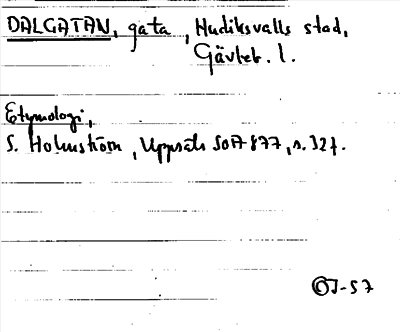 DALGATAN, gata, Hudiksvalls stad,
Gävleb. l.
Etymologi,
S. Holmström, Uppsats SOA 877, s. 32f.
OJ-57